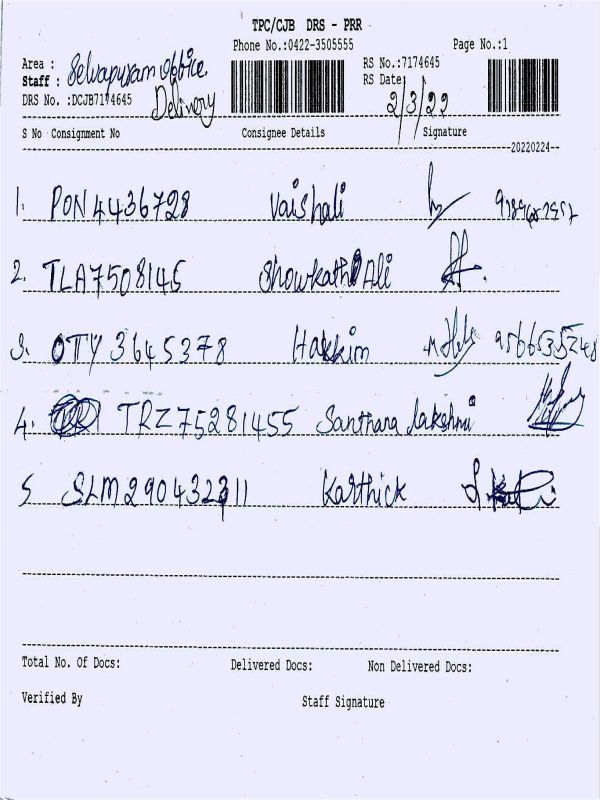 TPC/CJB DRS - PRR
Phone No.:0422-3505555 Page No.:1
Area : Selvapuram Office.
RS No.:7174645
Staff : Delivery
RS Date: 2/3/22
DRS No. :DCJB7174645
S No Consignment No Consignee Details Signature
--20220224--
1. PON4436728 Vaishali
2. TLA7508145 Showkath Ali
3. OTY 3645378 Hakkim 9566535248
4. TRZ75281455 Santhana lakshmi
5 SLM290432311 Karthick
Total No. Of Docs: Delivered Docs: Non Delivered Docs:
Verified By Staff Signature